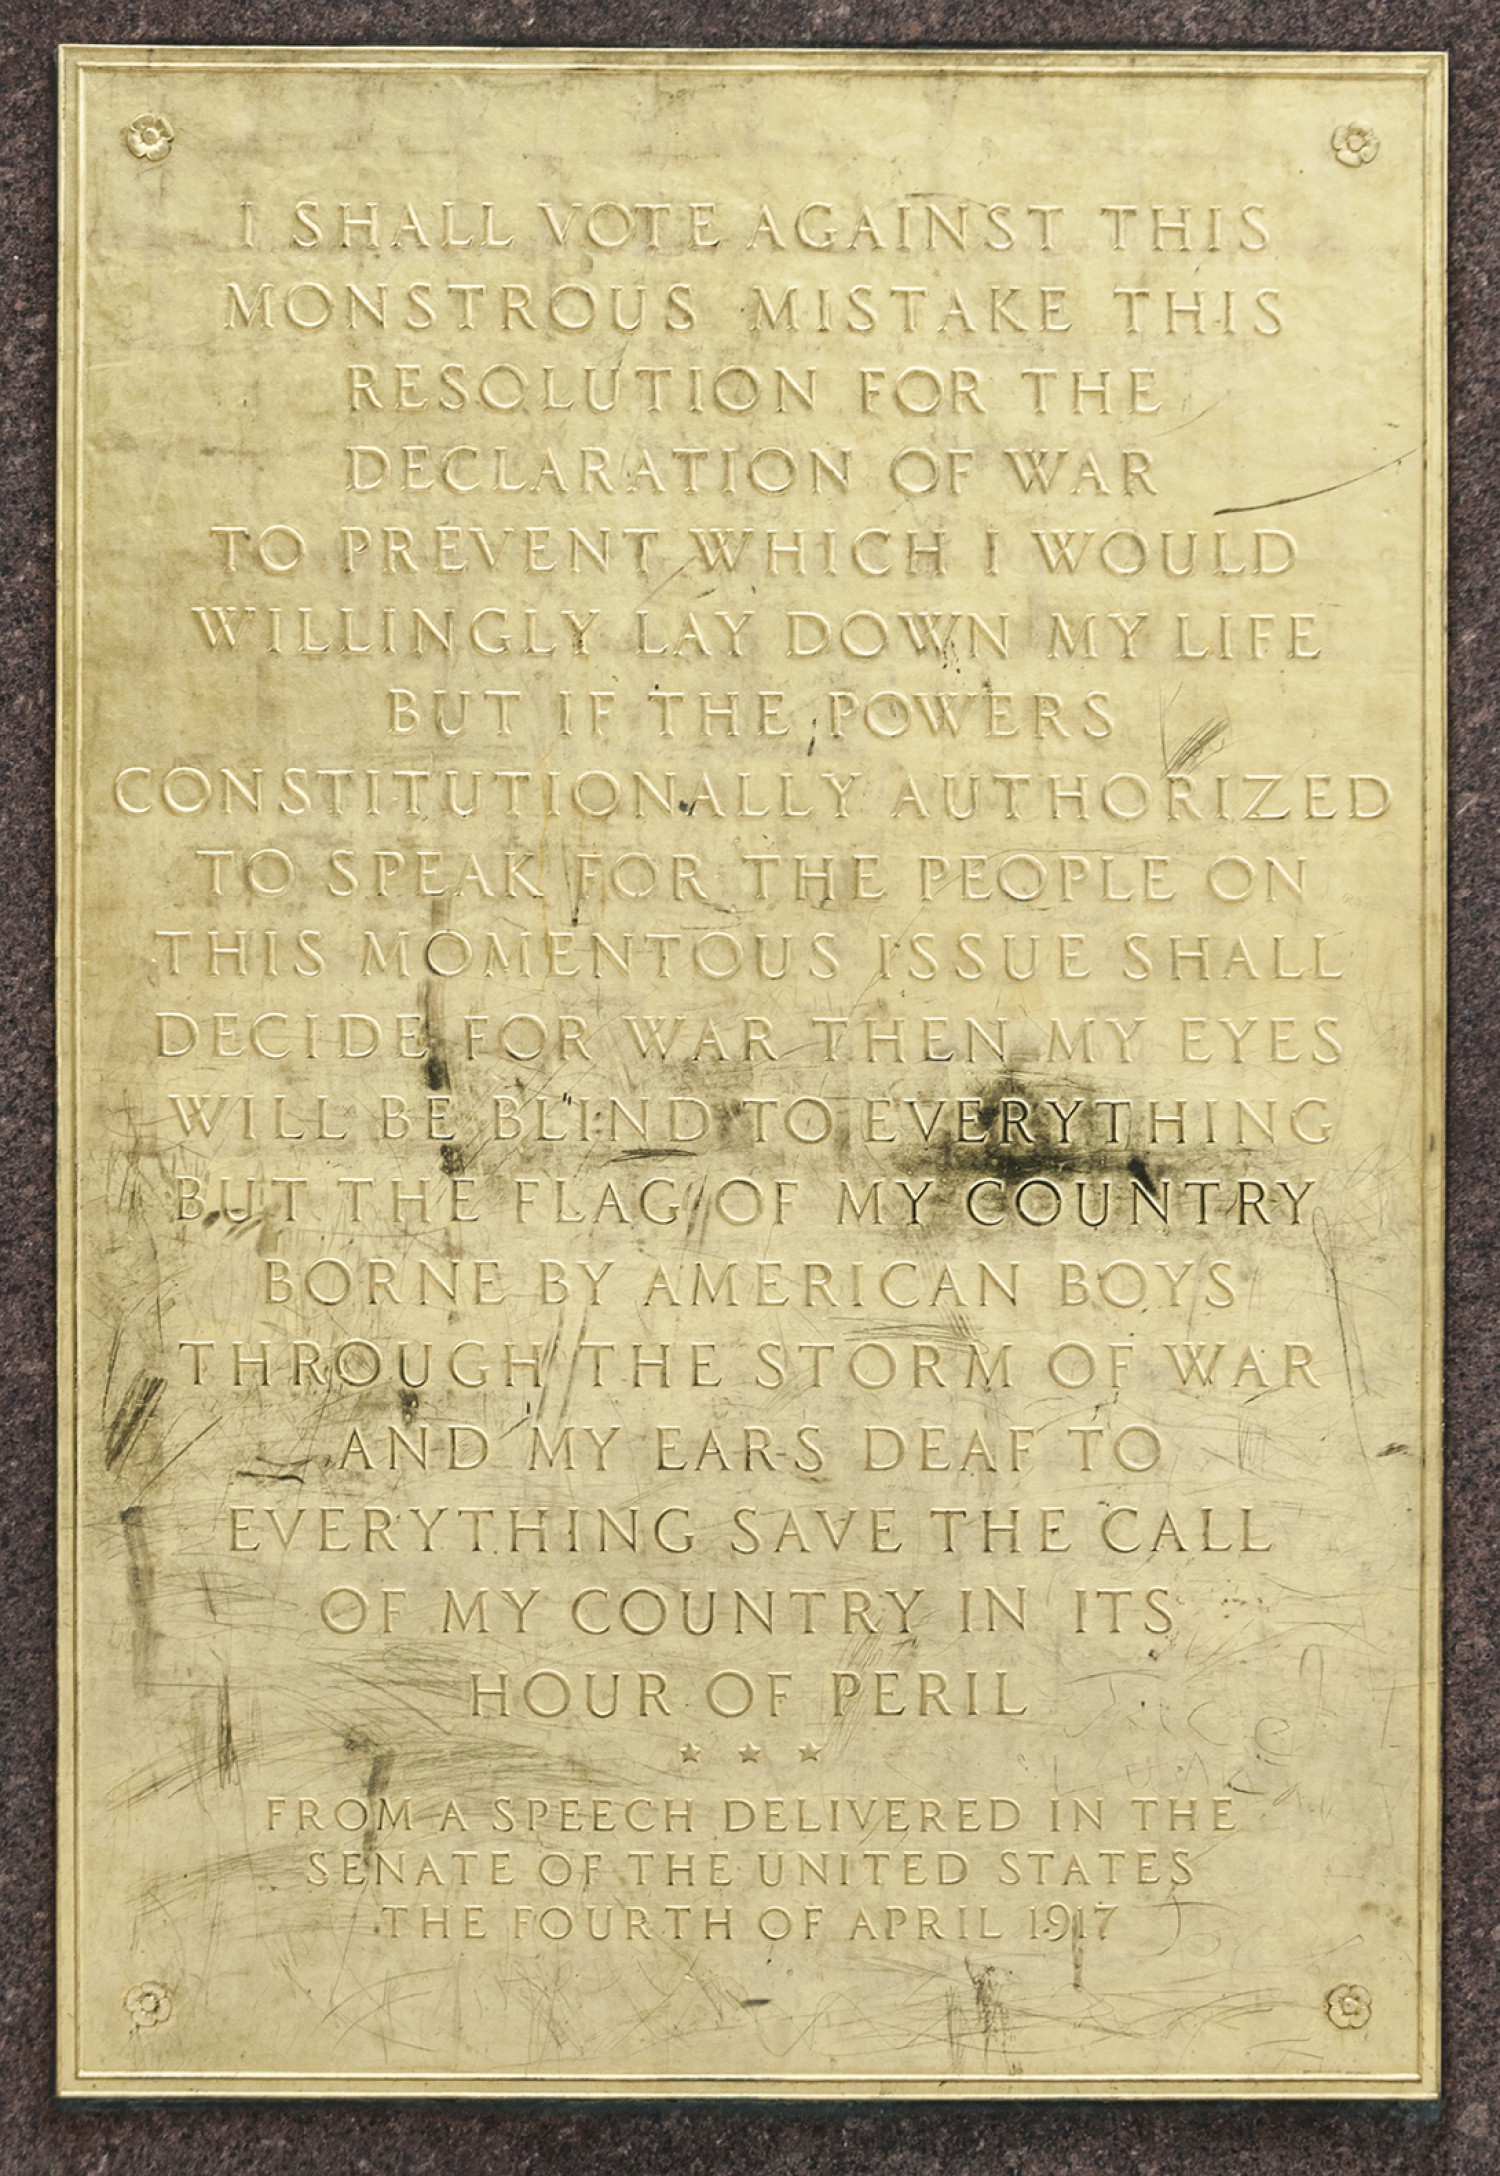 I SHALL VOTE AGAINST THIS
MONSTROUS MISTAKE THIS
RESOLUTION FOR THE
DECLARATION OF WAR
TO PREVENT WHICH I WOULD
WILLINGLY LAY DOWN MY LIFE
BUT IF THE POWERS
CONSTITUTIONALLY AUTHORIZED
TO SPEAK FOR THE PEOPLE ON
THIS MOMENTOUS ISSUE SHALL
DECIDE FOR WAR THEN MY EYES
WILL BE BLIND TO EVERYTHING
BUT THE FLAG OF MY COUNTRY
BORNE BY AMERICAN BOYS
THROUGH THE STORM OF WAR
AND MY EARS DEAF TO
EVERYTHING SAVE THE CALL
OF MY COUNTRY IN ITS
HOUR OF PERIL
FROM A SPEECH DELIVERED IN THE
SENATE OF THE UNITED STATES
THE FOURTH OF APRIL 1917